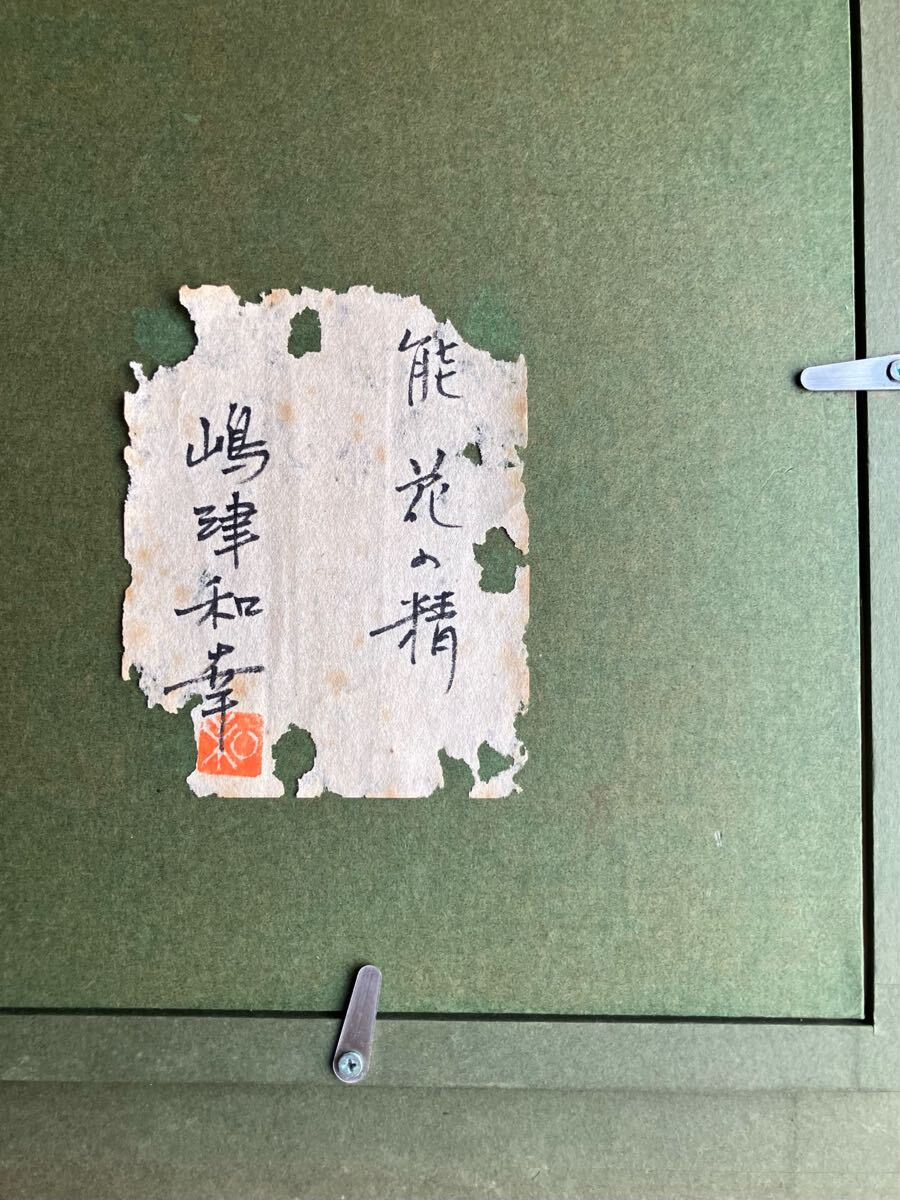 能 花の精
嶋津和幸
和